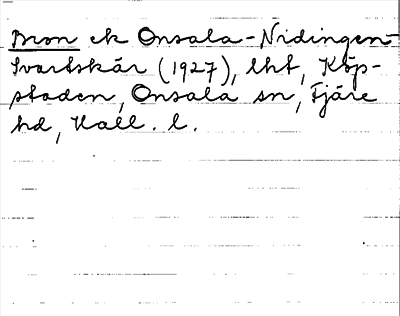 Bron ek Onsala-Nidingen-
Svartskär (1927), lht, Köp-
staden, Onsala sn, Fjäre
hd, Hall. l.